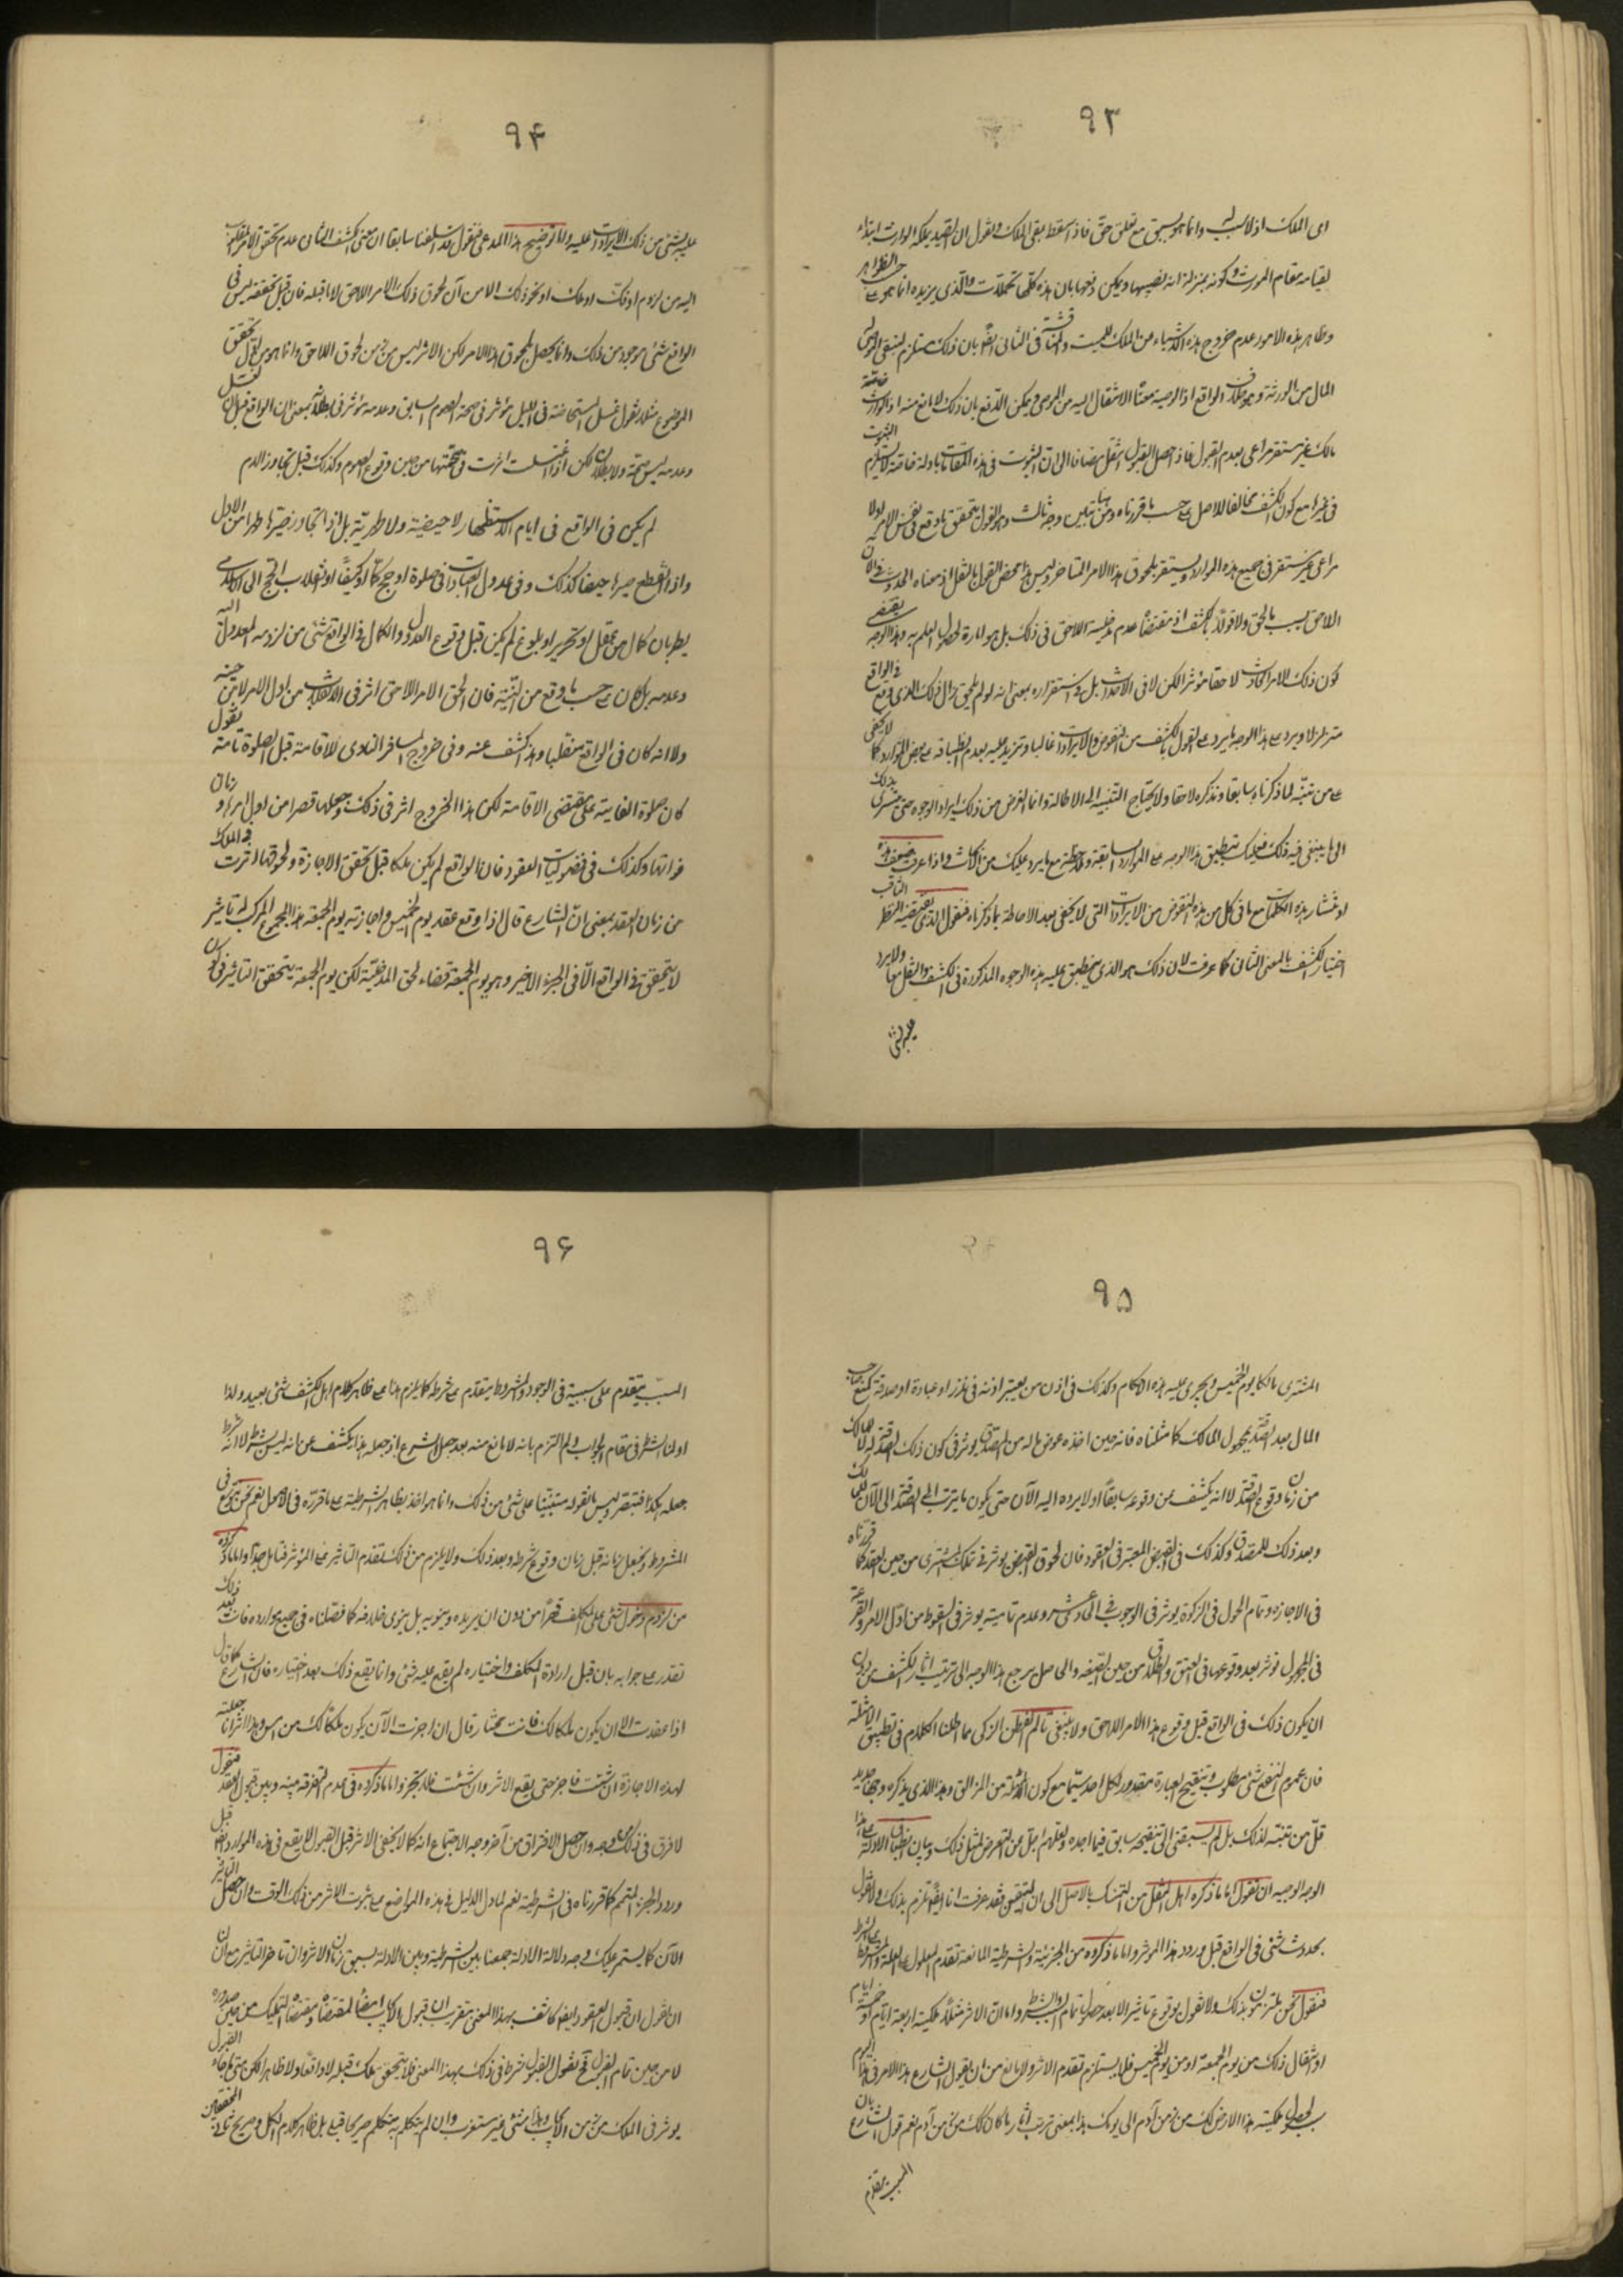 ٩٣
اى الملك اذ لا سبب له وانما هو يسبق مع تعلق حق فاذا سقط بقى الملك ولا نقول ان القصد يملكه الوارث ابتداء
لقيامه مقام المورث وكونه بمنزلة انه نصيبها ويمكن دفعها بان هذه كلها تحملات والذى يريده انما هو حسب الظواهر
وظاهر هذه الامور عدم خروج هذه الاشياء عن الملك للميت والمناقشة فى الثانى ايضا بان ذلك مستلزم لتلقى الموصى له
المال من الورثة وهو خلاف الواقع اذ الوصية معناها الانتقال اليه من الموصى ويمكن الدفع بان ذلك لا مانع منه اذ الوارث
مالك غير مستقر مراعى بعدم القبول فاذا حصل القبول انتقل مضافا الى ان الثبوت فى هذه المقامات بادلة خاصة لا يستلزم الثبوت
فى غيرها مع كون الكشف مخالفا للاصل على حسب ما قررناه ومن هنا تبين وجه ثالث وهو القول بتحقق ما وقع فى نفس الامر اولا
مراعى غير مستقر فى جميع هذه الموارد ويستقر بلحوق هذا الامر المتاخر وليس هذا محض القول بالنقل اذ معناه الحدوث فى الآن
اللاحق بسبب ما لحق ولا قولا بالكشف اذ مقتضاه عدم مدخلية اللاحق فى ذلك بل هو امارة لحصول العلم به وهذا الوجه يقتضى
كون ذلك الامر الحادث لاحقا مؤثرا لكن لا فى الاحداث بل فى استقراره بمعنى انه لو لم يلحق زال ذلك الذى وقع فى الواقع
متزلزلا ويرد على هذا الوجه ما يرد على القول بالكشف من النقوض والايرادات غالبا وتزيد عليه بعدم انطباقه على بعض الموارد كما لا يخفى
على من تنبه لما ذكرناه سابقا ونذكره لاحقا ولا يحتاج التنبيه الى الاطالة وانما الغرض من ذلك ايراد الوجوه حتى تسرى بذلك
الى ما ينبغى فيه ذلك فعليك بتطبيق هذا الوجه على الموارد السابقة وملاحظته مع ما يرد عليك من الابحاث واذا عرفت ضعف هذه
او منشأ هذه الكلمات مع ما فى كل من هذه النقوض من الايرادات التى لا يخفى بعد الاحاطة بما ذكرناه فنقول الذى يقتضيه النظر الثاقب
اختيار الكشف بالمعنى الثانى كما عرفت لان ذلك هو الذى ينطبق عليه هذه الوجوه المذكورة فى الكشف والنقل معا ولا يرد
عليه شئ
٩٤
عليه شئ من ذلك الايرادات عليه ولا توضيح هذا المدعى فنقول قد اسلفنا سابقا ان معنى الكشف الثانى عدم تحقق الامر
اليه من لزوم او فك او ملك او نحو ذلك الا من آن لحوق ذلك الامر اللاحق لا ما قبله فان قبل تحققه ليس فى
الواقع شئ موجود من ذلك وانما يحصل بلحوق هذا الامر لكن الاثر ليس من زمن لحوق اللاحق وانما هو من اول تحقق
الموضوع مثلا نقول غسل المستحاضة فى الليل مؤثر فى صحة الصوم السابق وعدمه مؤثر فى بطلانه بمعنى ان الواقع قبل الغسل
وعدمه ليس صحة ولا بطلان لكن اذا اغتسلت اثرت فى صحتها من حين وقوع الصوم وكذلك قبل تجاوز الدم
لم يكن فى الواقع فى ايام الاستظهار لا حيضية ولا طهرية بل اذا تجاوز صيرها طهرا من الاول
واذا انقطع صيرها حيضا كذلك وفى عدول العبادات فى صلوة او حج كما او كيفا او انقلاب الحج الى الاسلامى
بطريان كمال من عقل او تحرير او بلوغ لم يكن قبل وقوع العدول والكمال فى الواقع شئ من لزومه المعدول اليه
وعدمه بل كان على حسب ما وقع من النية فان لحق الامر اللاحق اثر فى الانقلاب من اول الامر لا من حينه
ولا انه كان فى الواقع منقلبا وهذا كشف عنه وفى خروج المسافر الناوى للاقامة قبل الصلوة تامة نقول
كان صلوة الفايتة على مقتضى الاقامة لكن هذا الخروج اثر فى ذلك وجعلها قصرا من اول امرها و زمان
فواتها وكذلك فى فضوليات العقود فان الواقع لم يكن ملكا قبل تحقق الاجازة ولحوقها اثرت فى الملك
من زمان العقد بمعنى ان الشارع قال اذا وقع عقد يوم الخميس واجازته يوم الجمعة هذا المجموع المركب له تاثير
لا يتحقق فى الواقع الا فى الجزء الاخير وهو يوم الجمعة قضاء لحق المدخلية لكن يوم الجمعة يتحقق التاثير فى كون
٩٥
المشترى مالكا يوم الخميس ويجرى عليه هذه الاحكام وكذلك فى اذن من يعتبر اذنه فى نذر او عبادة او صدقة كمنع صاحب
المال بعد التصدق بمجهول المالك كما مثلناه فانه حين اخذه عوض ماله من المتصدق يؤثر فى كون ذلك الصدقة له لا للمالك
من زمان وقوع التصدق لا انه يكشف عن وقوعه سابقا او لا يرده اليه الآن حتى يكون ما يترتب على الصدقة الى الآن للمالك
وبعد ذلك للمتصدق وكذلك فى القبض المعتبر فى العقود فان لحوق القبض يؤثر فى تملك المشترى من حين العقد كما قررناه
فى الاجازة وتمام الحول فى الزكوة يؤثر فى الوجوب فى الحادى عشر وعدم تماميته يؤثر فى السقوط من اول الامر والقرعة
فى المجهول تؤثر بعد وقوعها فى العتق والطلاق من حين الصيغة والحاصل مرجع هذا الوجه الى ترتيب اثار الكشف من دون
ان يكون ذلك فى الواقع قبل وقوع هذا الامر اللاحق ولا ينبغى تالم الفطن الزكى مما اطلنا الكلام فى تطبيق الامثلة
فان عموم النفع شئ مطلوب وتنقيح العبارة مقدور لكل احد سيما مع كون المسئلة من المزالق وهذا الذى يذكره وجها جديد
قل من تنبه لذلك بل لم يسبقنى الى تنقيحه سابق فيما اجده ولعلهم اجل من التعرض لمثل ذلك وبيان انطباق الادلة على هذا
الوجه الوجيه ان نقول اما ما ذكره اهل النقل من التمسك بالاصل الى ان اليقين فقد عرفت انا ايضا نلتزم بذلك ولا نقول
بحدوث شئ فى الواقع قبل ورود هذا المؤثر واما ما ذكروه من الجزئية والشرطية المانعة تقدم المعلول على العلة والمشروط على الشرط
فنقول نحن ملتزمون بذلك ولا نقول بوقوع تاثير الا بعد حصول تمام السبب والشرط واما ان الاثر مثلا ملكية اربعة ايام او خمسة ايام
او انتقال ذلك من يوم الجمعة او من يوم الخميس فلا يستلزم تقدم الاثر ولا مانع من ان يقول الشارع هذا الامر فى هذا اليوم
سبب لحصول ملكية هذا الارض لك من زمن آدم الى يومك هذا بمعنى ترتب اثار ما كان لك من زمن آدم نعم قول الشارع بان
السبب يتقدم
٩٦
المسبب يتقدم على سببيه فى الوجود والمشروط يتقدم على شرطه كما يلزم هنا على ظاهر كلام اهل الكشف شئ بعيد ولذا
اولنا الشرط فى مقام الجواب ولم التزم بانه لا مانع منه بعد جعل الشرع اذ جعله هذا يكشف عن انه ليس بشرط لا انه شرط
جعله هكذا فتبصر وليس ما نقوله مبتنيا على شئ من ذلك وانما هو اخذ بظاهر الشرطية على ما قررته فى الاصل نعم نحن نتصرف فى
المشروط ونجعل زمانه قبل زمان وقوع شرطه وبعد ذلك ولا يلزم من ذلك تقدم التاثير على المؤثر فتامل جدا واما ما ذكروه
من لزوم دخول شئ على المكلف قهرا من دون ان يريده وينويه بل ينوى خلافه كما فصلناه فى جميع موارده فانت بعد ذلك
تقدر على جوابه بان قبل ارادة المكلف واختياره لم يقع عليه شئ وانما يقع ذلك بعد اختياره فان الشارع كما قال
اذا عقدت الآن يكون ملكا لك فانت مختار قال ان اجزت الآن يكون ملكا لك من امس وهذا اثر انا جعلته
لهذه الاجازة ان شئت فاجز حتى يقع الاثر وان شئت فلا تجز واما ما ذكروه فى عدم التفرقة بينه وبين قبول العقد فنقول
لا فرق فى ذلك من وجه وان حصل الافتراق من آخر وجه الاجتماع انه كما لا يخفى الاثر قبل القبول لا يقع فى هذه الموارد ايضا قبل
ورود الجزء المتمم كما قررناه فى الشرطية نعم لما دل الدليل فى هذه المواضع على ثبوت الاثر من ذلك الوقت وان حصل التاثير
الآن كما يستمر عليك وجه دلالة الادلة جمعنا بين الشرطية وبين الادلة بسبق زمان الاثر وان تاخر التاثير مع ان
ان نقول ان قبول العقود ايضا كاشف بهذا المعنى بتقريب ان قبول الايجاب امضاء لمقتضاه ومقتضاه التمليك من حين صدوره
لا من حين تمام القبول فح نقول القبول شرط فى ذلك بهذا المعنى فلا يتحقق ملك قبله لا واقعا ولا ظاهرا لكن متى ما جاء القبول
يؤثر فى الملك من زمن الايجاب وهذا شئ غير مستغرب وان لم يتكلم به متكلم صريحا قبلى بل ظاهر كلام الكل وصريح ثمانية المحققين